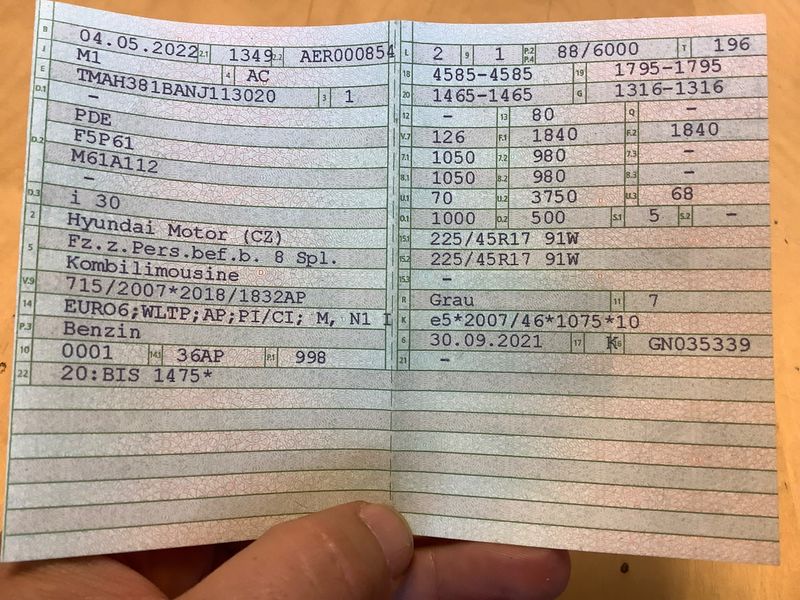 B 04.05.2022 2.1 1349 2.2 AER000854
J M1 4 AC
E TMAH381BANJ113020 3 1
D.1 –
PDE
D.2 F5P61
M61A112
–
D.3 i 30
2 Hyundai Motor (CZ)
5 Fz.z.Pers.bef.b. 8 Spl.
Kombilimousine
V.9 715/2007*2018/1832AP
14 EURO6;WLTP;AP;PI/CI; M, N1 I
P.3 Benzin
10 0001 14.1 36AP P.1 998
22 20:BIS 1475*
L 2 9 1 P.2 P.4 88/6000 T 196
18 4585-4585 19 1795-1795
20 1465-1465 G 1316-1316
12 – 13 80 Q –
V.7 126 F.1 1840 F.2 1840
7.1 1050 7.2 980 7.3 –
8.1 1050 8.2 980 8.3 –
U.1 70 U.2 3750 U.3 68
O.1 1000 O.2 500 S.1 5 S.2 –
15.1 225/45R17 91W
15.2 225/45R17 91W
15.3 –
R Grau 11 7
K e5*2007/46*1075*10
6 30.09.2021 17 K 16 GN035339
21 –